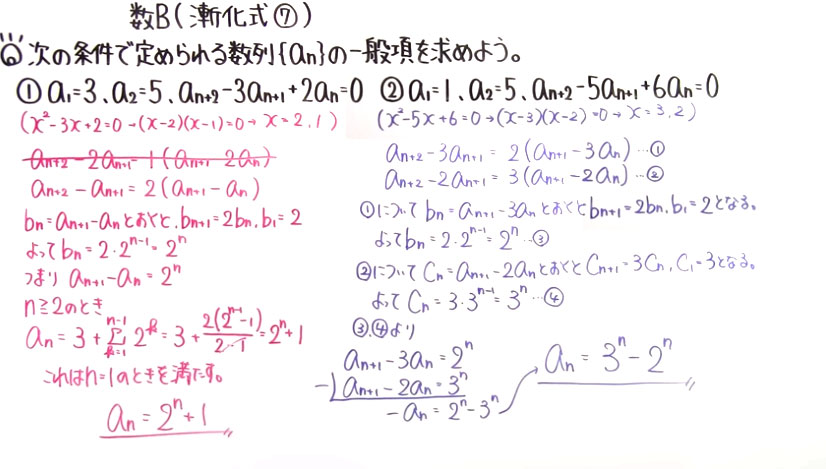 数B(漸化式⑦)
次の条件で定められる数列{an}の一般項を求めよう。
① a₁=3、a₂=5、an+2-3an+1+2an=0
(x²-3x+2=0→(x-2)(x-1)=0→x=2,1)
an+2-2an+1=1(an+1-2an)
an+2-an+1=2(an+1-an)
bn=an+1-anとおくと、bn+1=2bn、b₁=2
よってbn=2・2ⁿ⁻¹=2ⁿ
つまり an+1-an=2ⁿ
n≧2のとき
an=3+Σ[k=1, n-1] 2ᵏ=3+2(2ⁿ⁻¹-1)/(2-1)=2ⁿ+1
これはn=1のときを満たす。
an=2ⁿ+1
② a₁=1、a₂=5、an+2-5an+1+6an=0
(x²-5x+6=0→(x-3)(x-2)=0→x=3,2)
an+2-3an+1=2(an+1-3an)…①
an+2-2an+1=3(an+1-2an)…②
①についてbn=an+1-3anとおくとbn+1=2bn、b₁=2となる。
よってbn=2・2ⁿ⁻¹=2ⁿ…③
②についてCn=an+1-2anとおくとCn+1=3Cn、C₁=3となる。
よってCn=3・3ⁿ⁻¹=3ⁿ…④
③,④より
an+1-3an=2ⁿ
-)an+1-2an=3ⁿ
-an=2ⁿ-3ⁿ
an=3ⁿ-2ⁿ